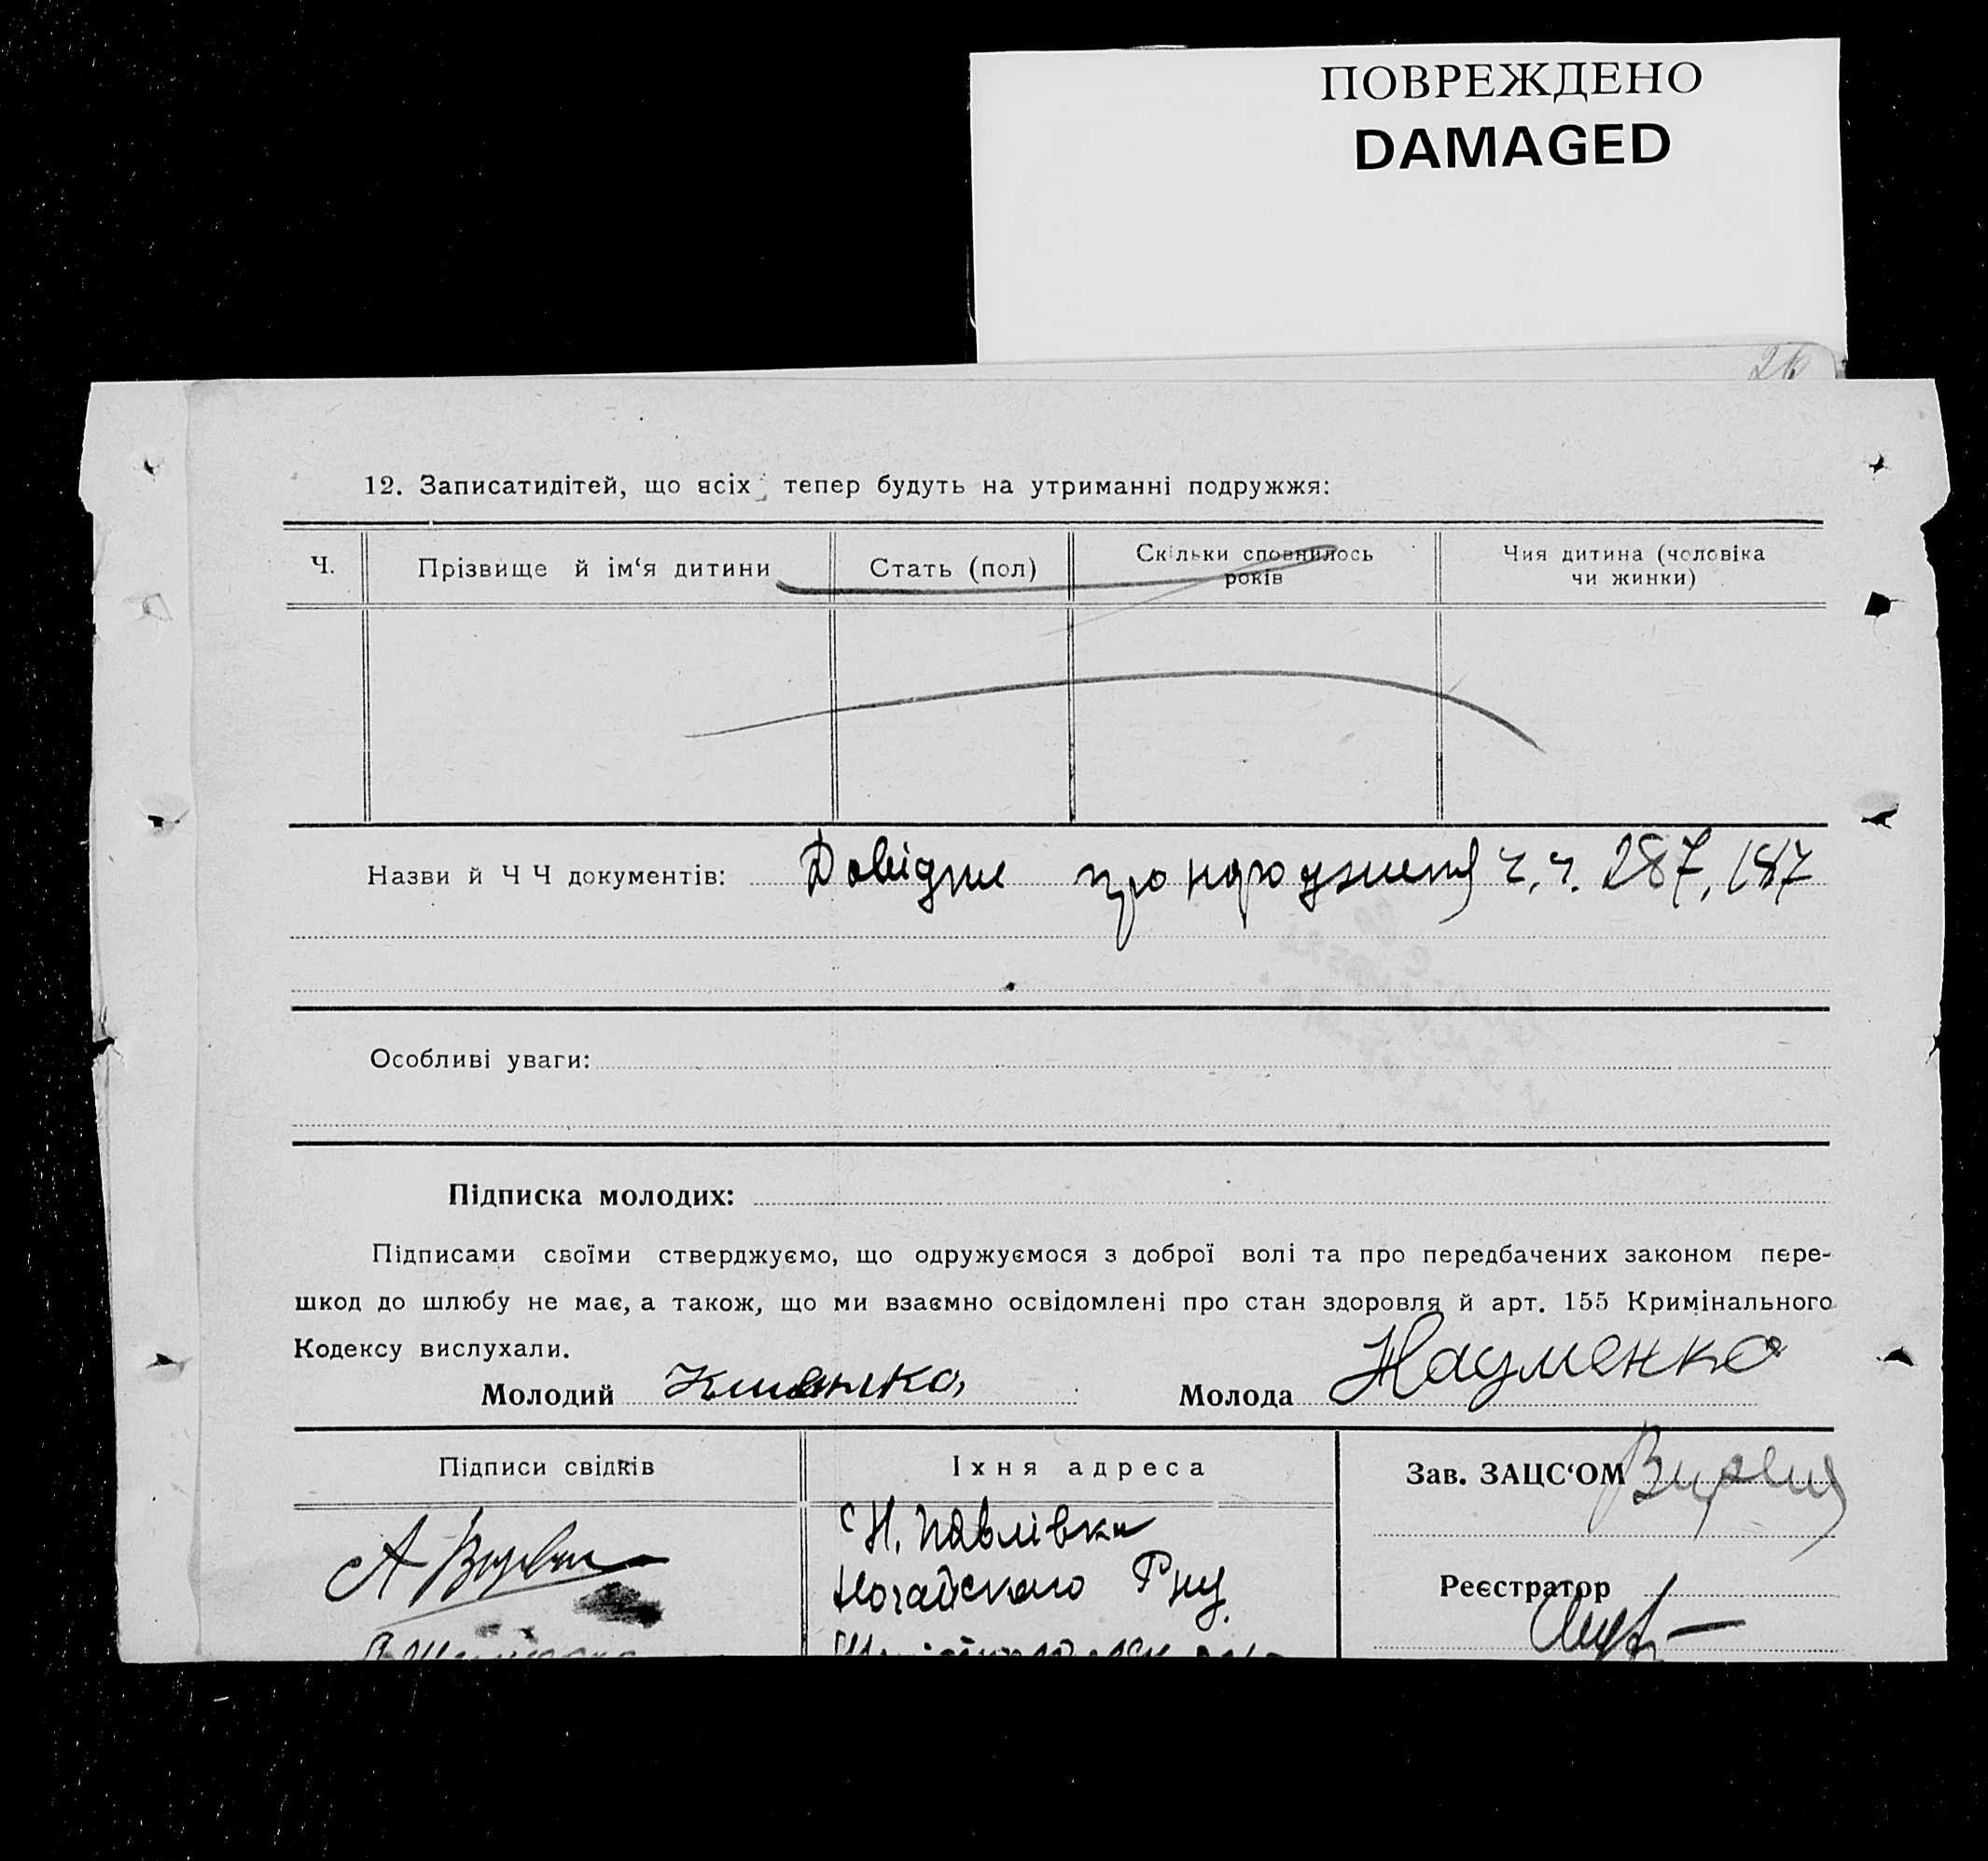 ПОВРЕЖДЕНО
DAMAGED
26
12. Записатидітей, що всіх тепер будуть на утриманні подружжя:
Ч.
Прізвище й ім‘я дитини
Стать (пол)
Скільки сповнилось
років
Чия дитина (чоловіка
чи жинки)
Назви й Ч Ч документів: Довідки про народження ч.ч. 287, 187
Особливі уваги:
Підписка молодих:
Підписами своїми стверджуємо, що одружуємося з доброї волі та про передбачених законом пере-
шкод до шлюбу не має, а також, що ми взаємно освідомлені про стан здоровля й арт. 155 Кримінального
Кодексу вислухали.
Молодий
Молода Науменко
Підписи свідків
Їхня адреса
Зав. ЗАЦС‘ОМ
А
Н. Павлівка
Ногайского Р-ну
Реєстратор